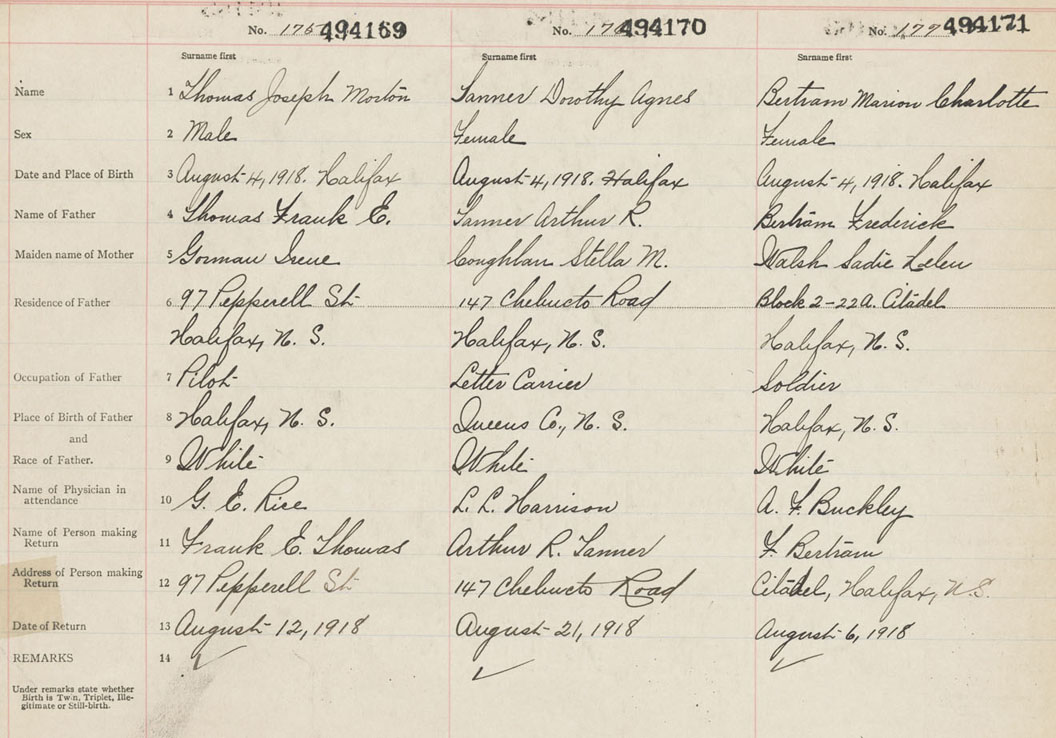 No. 494169 No. 494170 No. 177 494171
Surname first Surname first Surname first
Name 1 Thomas Joseph Morton Tanner Dorothy Agnes Bertram Marion Charlotte
Sex 2 Male Female Female
Date and Place of Birth 3 August 4, 1918. Halifax August 4, 1918. Halifax August 4, 1918. Halifax
Name of Father 4 Thomas Frank E. Tanner Arthur R. Bertram Frederick
Maiden name of Mother 5 Gorman Irene Coughlan Stella M. Walsh Sadie
Residence of Father 6 97 Pepperell St 147 Chebucto Road Block 2-22A. Citadel
Halifax, N. S. Halifax, N. S. Halifax, N. S.
Occupation of Father 7 Pilot Letter Carrier Soldier
Place of Birth of Father 8 Halifax, N. S. Queens Co., N. S. Halifax, N. S.
and
Race of Father. 9 White White White
Name of Physician in
attendance 10 G. E. Rice L. L. Harrison A. F. Buckley
Name of Person making
Return 11 Frank E. Thomas Arthur R. Tanner F. Bertram
Address of Person making
Return 12 97 Pepperell St 147 Chebucto Road Citadel, Halifax, N.S.
Date of Return 13 August 12, 1918 August 21, 1918 August 6, 1918
REMARKS 14
Under remarks state whether
Birth is Twin, Triplet, Ille-
gitimate or Still-birth.